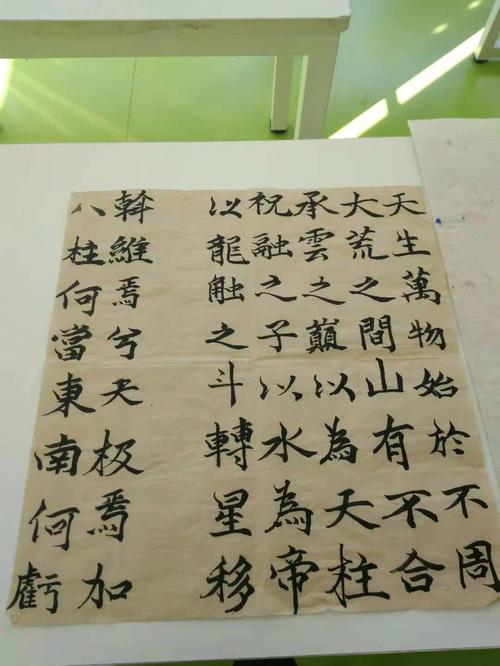 天生萬物始於不周
大荒之間山有不合
承雲之巔以為天柱
祝融之子以水為帝
以龍触之斗轉星移
斡維焉兮天极焉加
八柱何當東南何虧